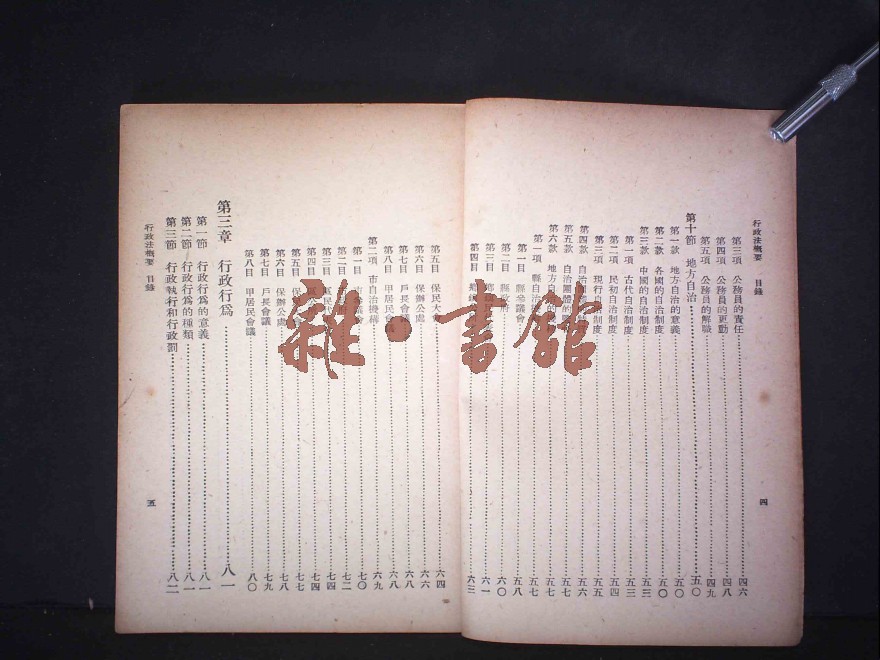 行政法概要 目錄
四
第三項 公務員的責任 四六
第四項 公務員的更動 四八
第五項 公務員的解職 四九
第十節 地方自治 五〇
第一款 地方自治的意義 五〇
第二款 各國的自治制度 五〇
第三款 中國的自治制度 五三
第一項 古代自治制度 五三
第二項 民初自治制度 五四
第三項 現行自治制度 五五
第四款 五六
第五款 自治團體的 五七
第六款 地方自治的 五七
第一項 縣自治 五七
第一目 縣參議會 五八
第二目 縣政府 六〇
第三目 六一
第四目 六三
第五目 保民大會 六四
第六目 保辦公處 六六
第七目 戶長會議 六八
第八目 甲居民會議 六八
第二項 市自治機構 六九
第一目 市參議會 七〇
第二目 七二
第三目 七四
第四目 七四
第五目 保 七七
第六目 保辦公處 七八
第七目 戶長會議 七九
第八目 甲居民會議 八〇
第三章 行政行為 八一
第一節 行政行為的意義 八一
第二節 行政行為的種類 八一
第三節 行政執行和行政罰 八二
行政法概要 目錄
五
雜·書館